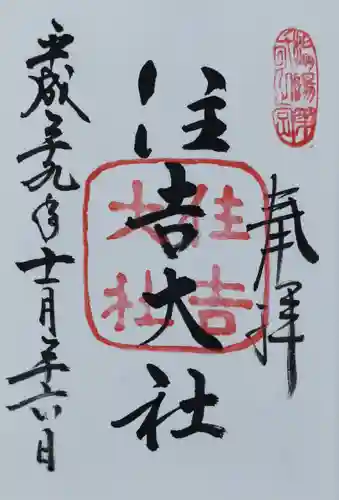 奉拝
住吉大社
平成二十九年十二月二十六日
住吉
大社